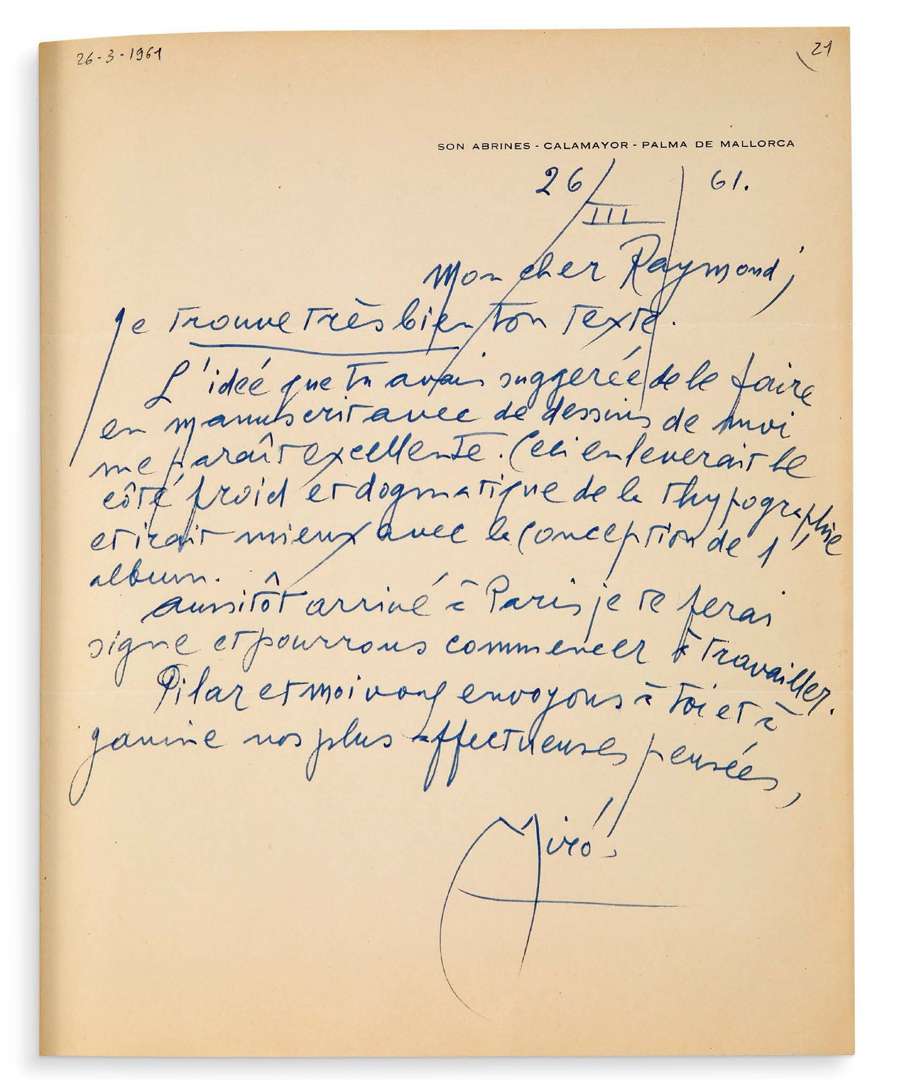 26-3-1961
21
SON ABRINES - CALAMAYOR - PALMA DE MALLORCA
26/III/61.
Mon cher Raymond,
Je trouve très bien ton texte.
L'ideé que tu avais suggerée de le faire
en manuscrit avec de dessins de moi
me paraît excellente. Ceci enleverait le
côté froid et dogmatique de la thypographie
et irait mieux avec la conception de l'
album.
aussitôt arrivé à Paris je te ferai
signe et pourrons commencer à travailler.
Pilar et moi vous envoyons à toi et à
Janine nos plus affectueuses pensées,
Miró.